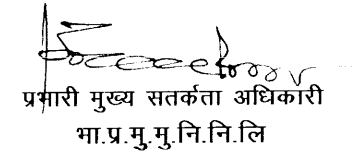 प्रभारी मुख्य सतर्कता अधिकारी
भा.प्र.मु.मु.नि.नि.लि